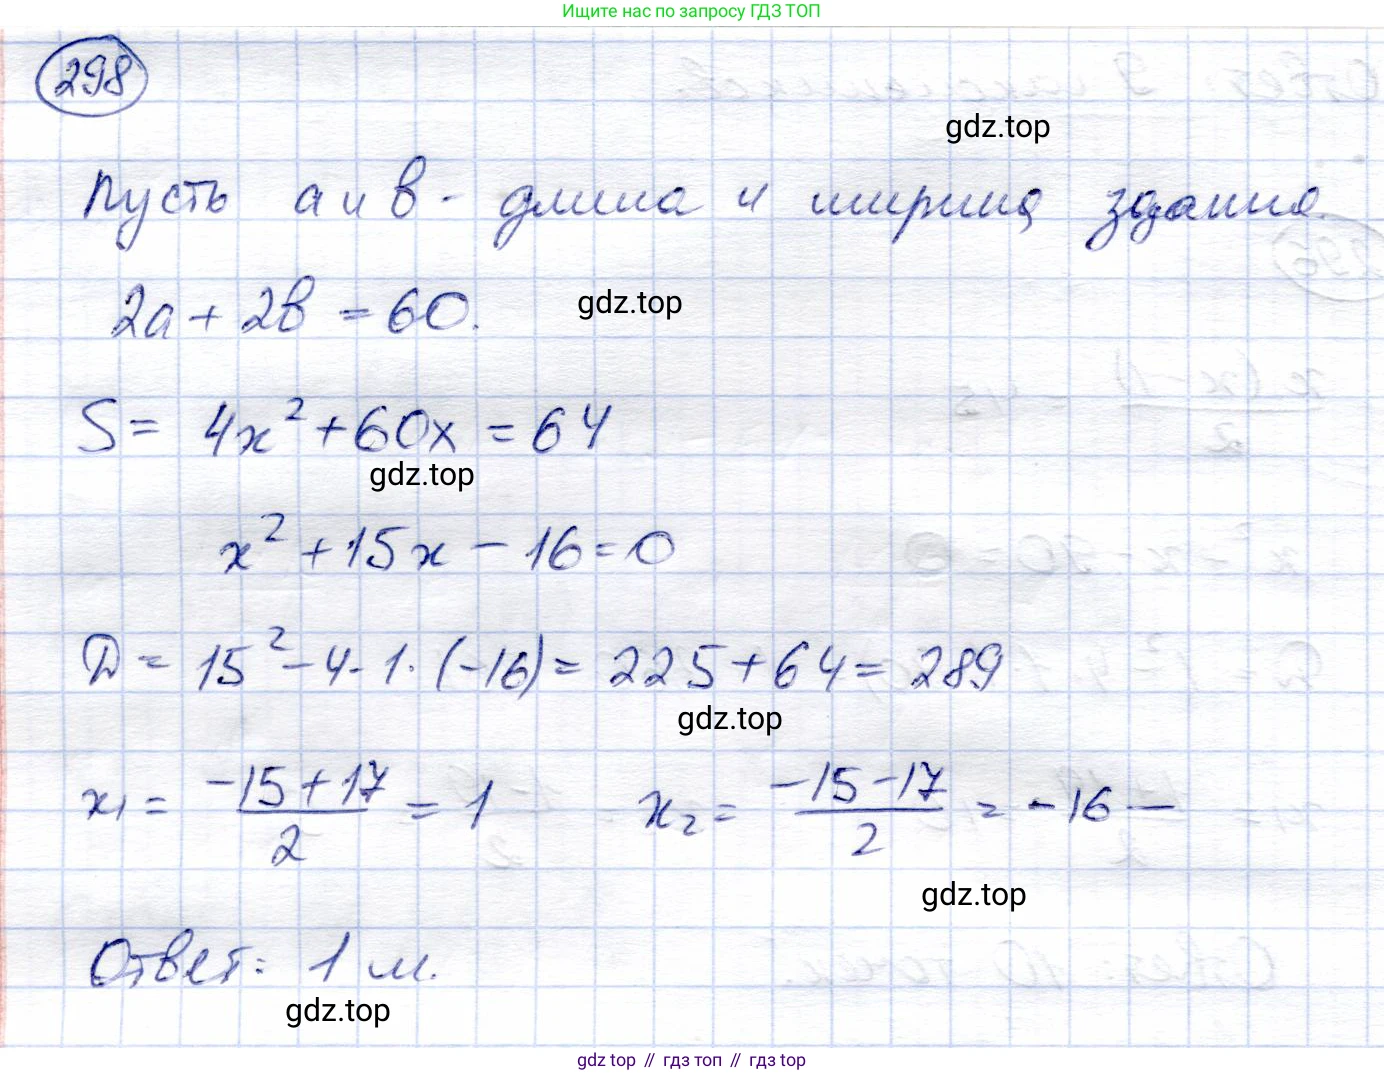 Ищите нас по запросу ГДЗ ТОП
298
gdz.top
Пусть a и b - длина и ширина здания.
2a + 2b = 60.
gdz.top
S = 4x² + 60x = 64
gdz.top
x² + 15x - 16 = 0
D = 15² - 4 · 1 · (-16) = 225 + 64 = 289
gdz.top
x₁ = (-15 + 17)/2 = 1 x₂ = (-15 - 17)/2 = -16 —
gdz.top
Ответ: 1 м.
gdz.top
gdz top // гдз топ // гдз top